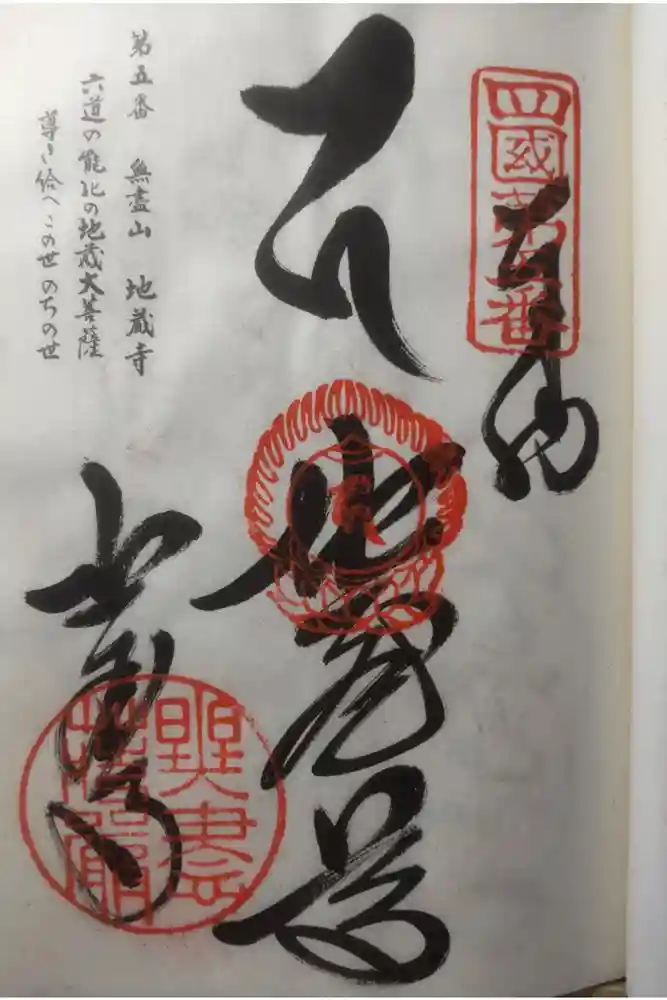 四國第五番
奉納
地蔵
地蔵寺
無盡莊嚴
第五番 無盡山 地蔵寺
六道の能化の地蔵大菩薩
導き給へこの世のちの世